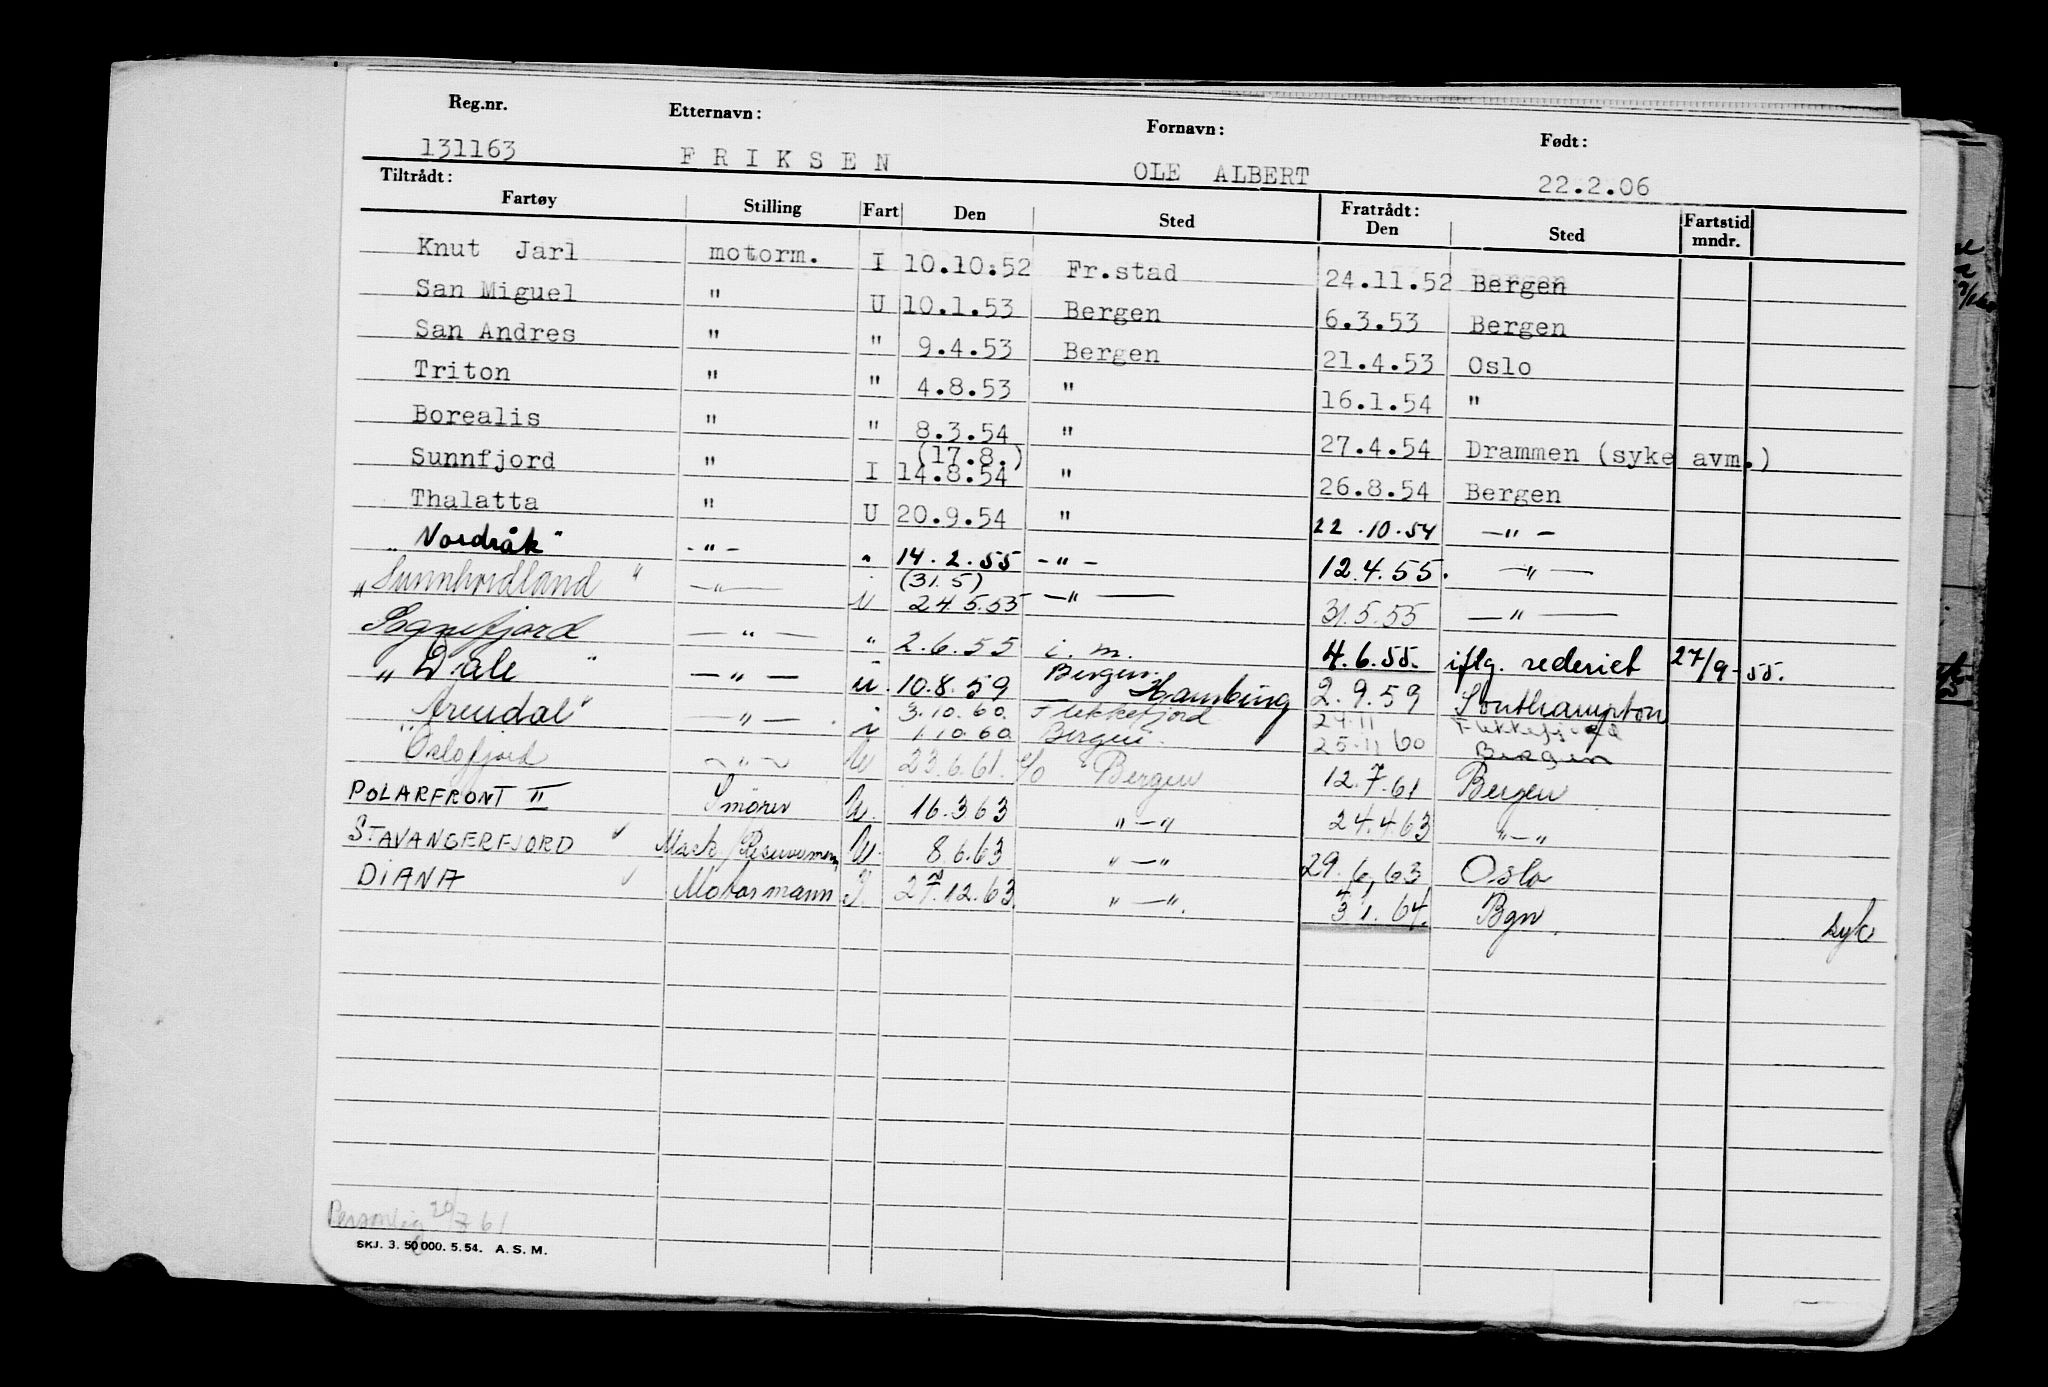 Reg.nr. Etternavn: Fornavn: Født:
131163 FRIKSEN OLE ALBERT 22.2.06
Tiltrådt: Fratrådt:
Fartøy Stilling Fart Den Sted Den Sted Fartstid mndr.
Knut Jarl motorm. I 10.10.52 Fr.stad 24.11.52 Bergen
San Miguel " U 10.1.53 Bergen 6.3.53 Bergen
San Andres " " 9.4.53 Bergen 21.4.53 Oslo
Triton " " 4.8.53 " 16.1.54 "
Borealis " " 8.3.54 " 27.4.54 Drammen (syke avm.)
(17.8.)
Sunnfjord " I 14.8.54 " 26.8.54 Bergen
Thalatta " U 20.9.54 " 22.10.54 -"-
"Nordråk" -"- " 14.2.55 -"- 12.4.55. -"-
(31.5)
"Sunnhordland" -"- i 24.5.55 -"- 31.5.55 -"-
Sognefjord -"- " 2.6.55 i.m. 4.6.55. iflg. rederiet 27/9-55.
"Dale" -"- u. 10.8.59 Bergen. Hamburg 2.9.59 Southampton
"Arendal" -"- i 3.10.60. Flekkefjord 24.11 Flekkefjord
1.10.60. Bergen. 25.11 60 Bergen
"Oslofjord ~"~ U 23.6.61. Bergen 12.7.61 Bergen
POLARFRONT II Smörer U. 16.3 63 "-" 24.4.63 "-"
STAVANGERFJORD U. 8.6.63 "-" 29.6.63 Oslo
DIANA Motormann I. 27.12.63. "-". 3 1. 64. Bgn. syk
Personlig 20/7 61
SKJ. 3. 50 000. 5.54. A.S.M.